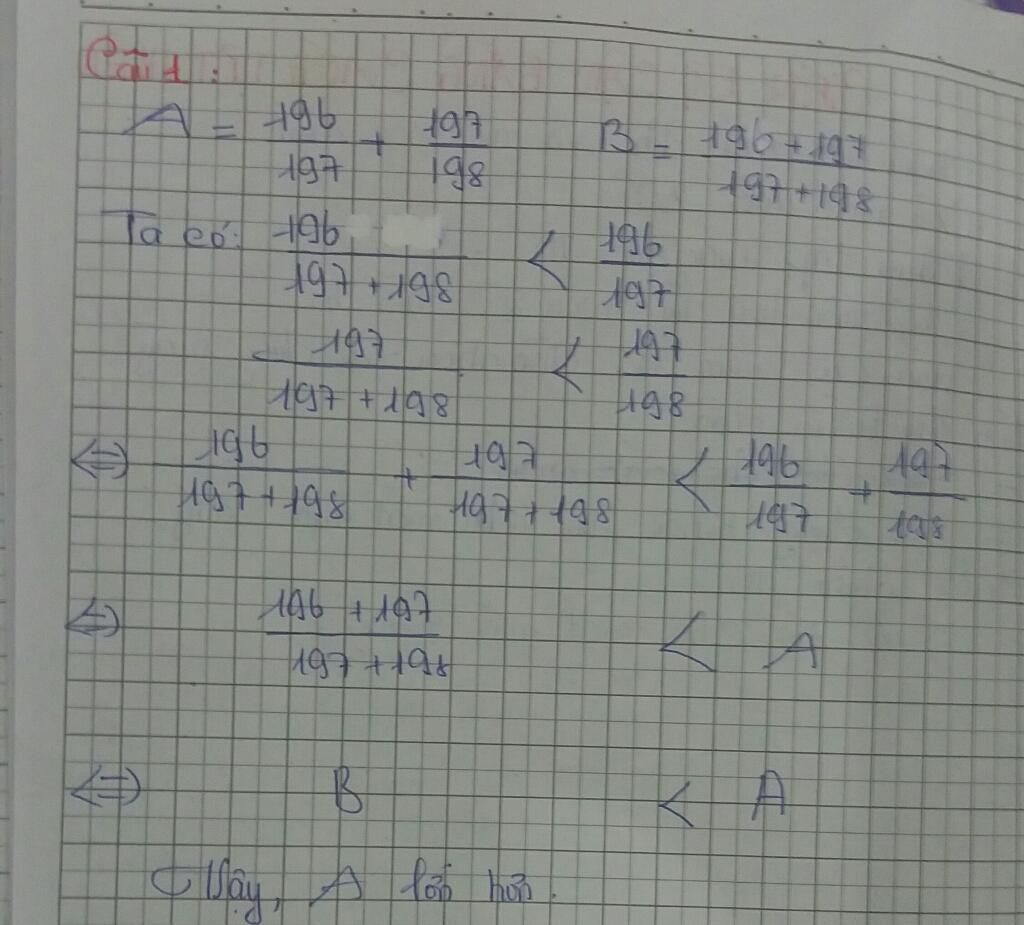 Câu 1:
A = 196/197 + 197/198    B = 196+197/197+198
Ta có: 196/197+198 < 196/197
197/197+198 < 197/198
<=> 196/197+198 + 197/197+198 < 196/197 + 197/198
<=> 196+197/197+198 < A
<=> B < A
Vậy, A lớn hơn.